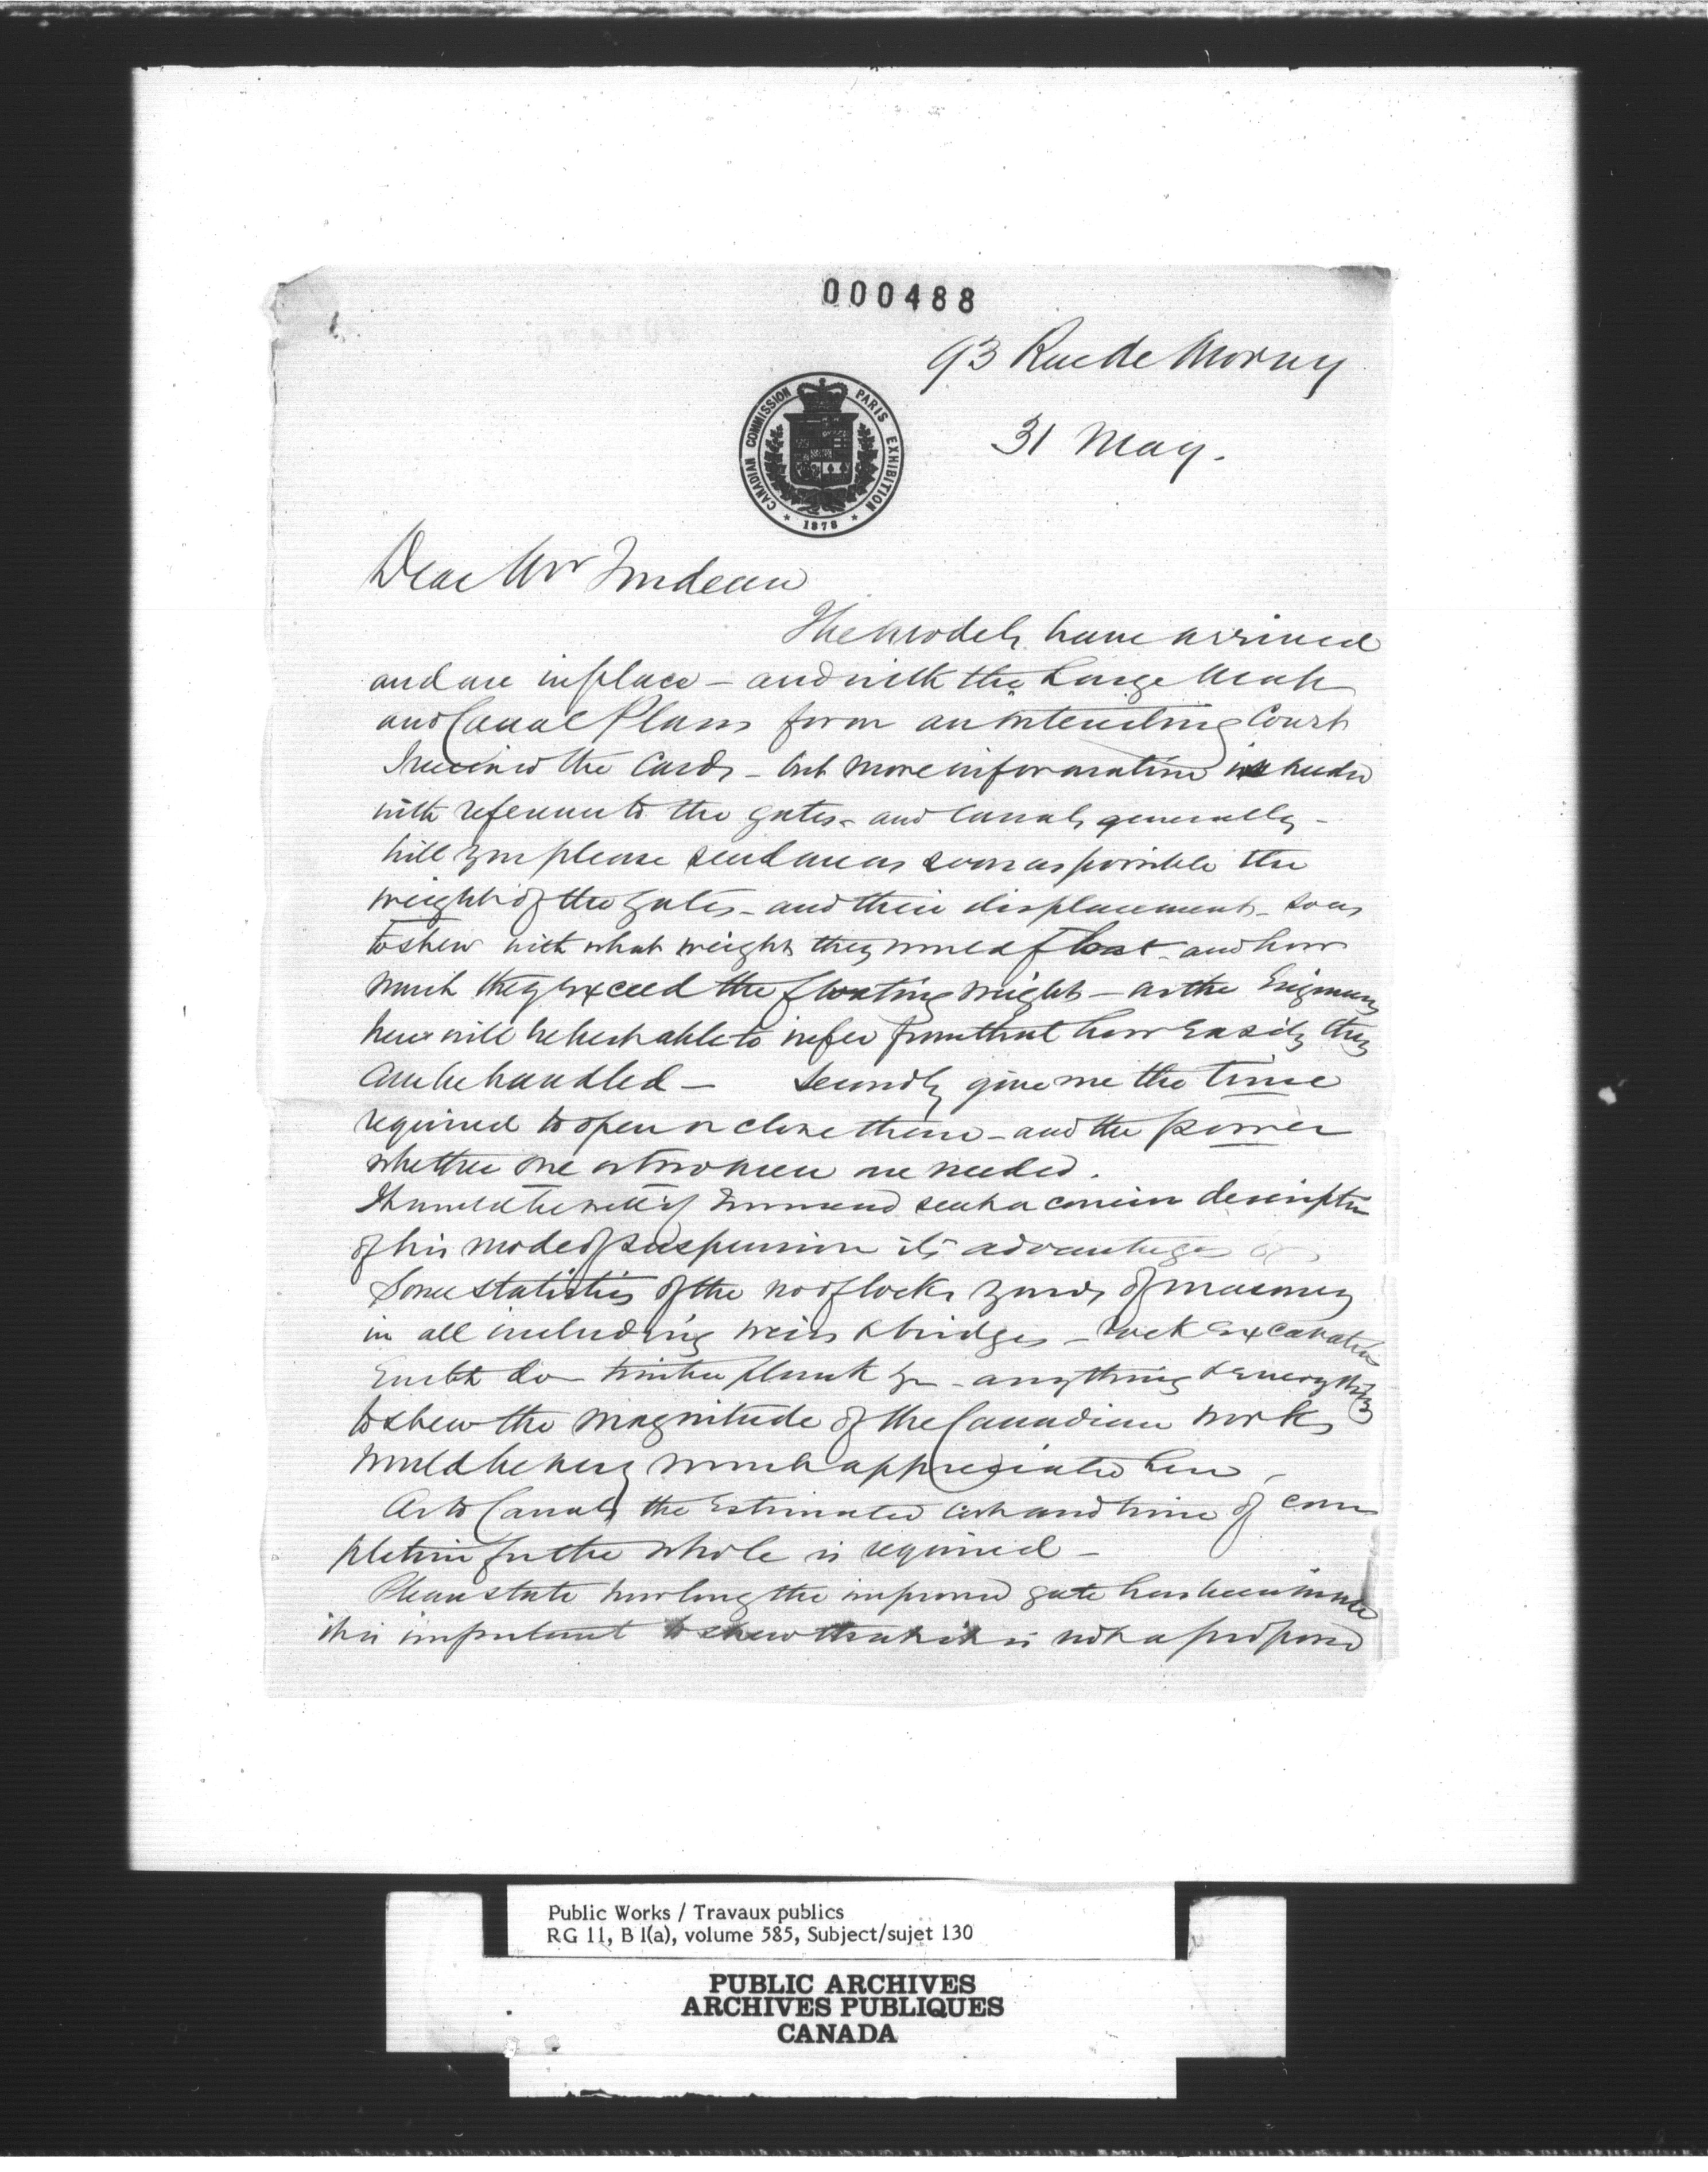 000488
93 Rue de Morny
CANADIAN COMMISSION PARIS EXHIBITION
* 1878 *
31 May.
Dear Mr Trudeau
The models have arrived
and are in place – and with the Large Map
and Canal Plans form an interesting Court
I received the Cards – but more information is needed
with reference to the gates – and Canals generally –
Will you please send me as soon as possible the
weight of the gates – and their displacement – so as
to shew with what weight they would float – and how
much they exceed the floating weight – as the Engineers
here will be best able to infer from that how Easily they
can be handled – Secondly give me the time
required to open or close them – and the power
whether one or two men are needed.
It would be well if would send a concise description
of his mode of suspension its advantages &c
Some statistics of the no of locks yards of masonry
in all including weirs & bridges – rock Excavation
Earth do timber plank &c – anything & everything
to shew the magnitude of the Canadian works
would be very much appreciated here –
As to Canals the Estimated cost and time of com
pletion for the whole is required –
Please state how long the improved gate has been in use
it is important to shew that it is not a proposed
Public Works / Travaux publics
RG 11, B 1(a), volume 585, Subject/sujet 130
PUBLIC ARCHIVES
ARCHIVES PUBLIQUES
CANADA